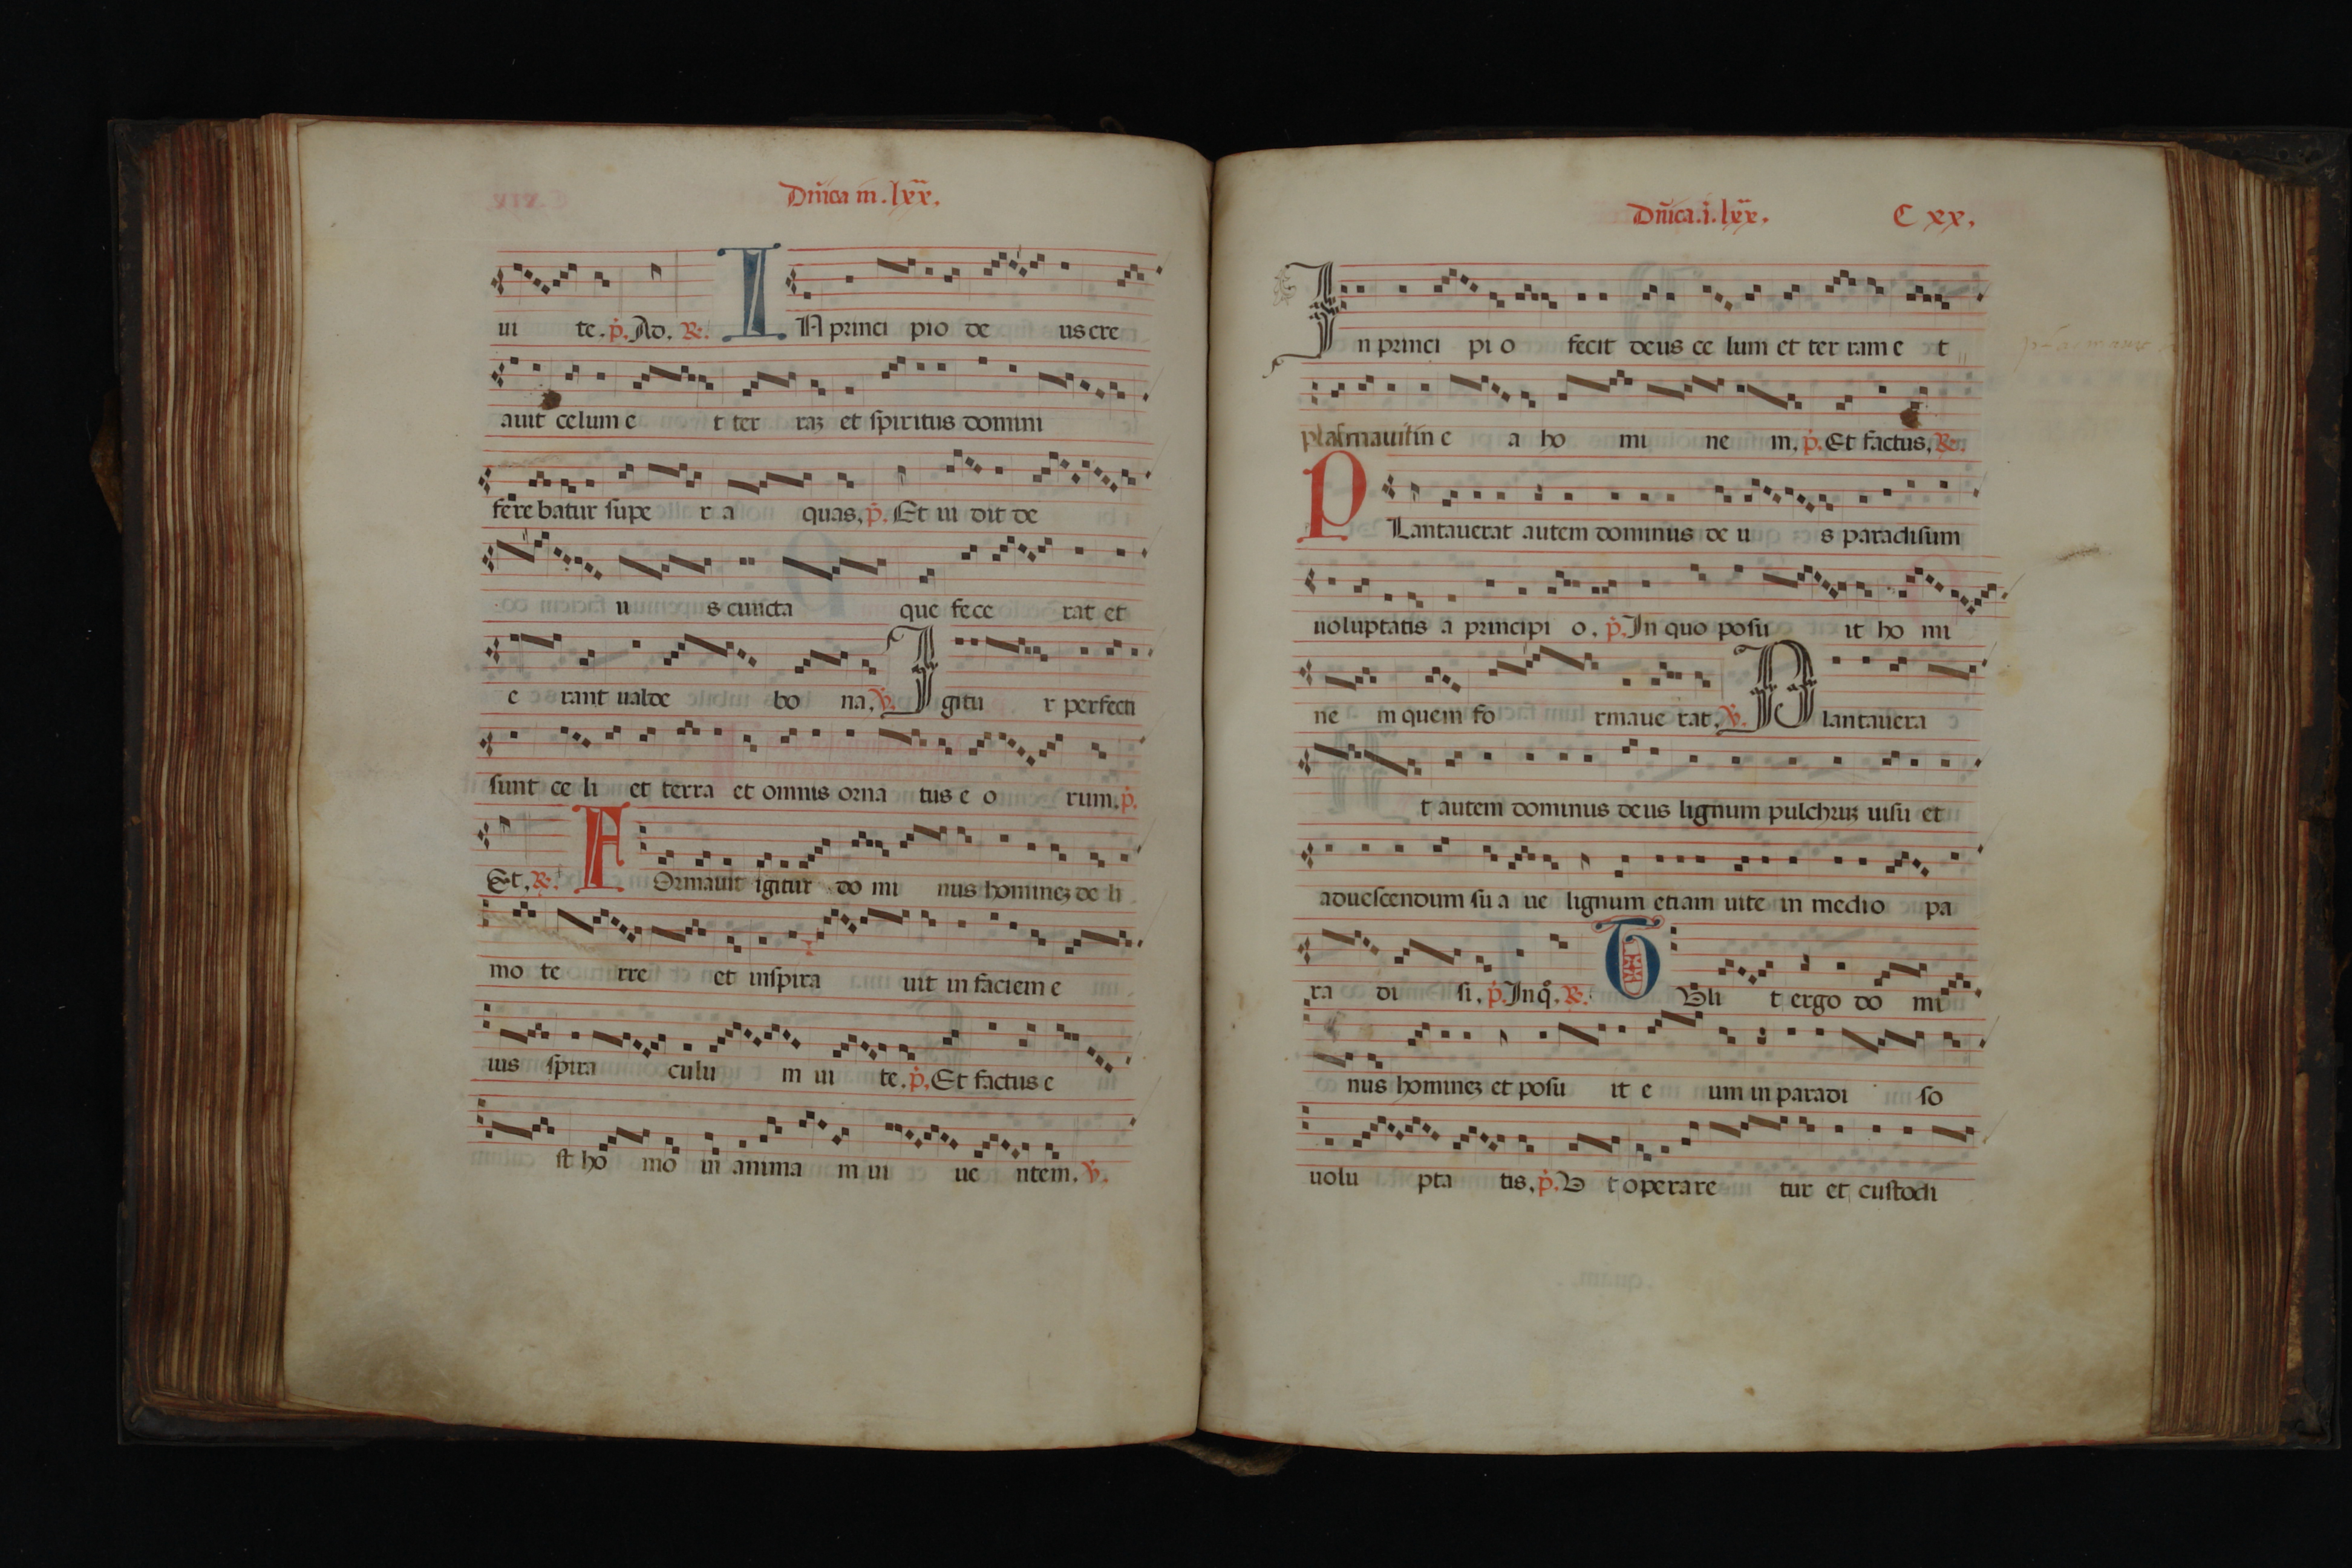 Dñica in. lxx̃.
ui te. p̃. Ad. R̃.
IN princi pio de us cre
auit celum e t ter raʒ et spiritus domini
fere batur supe r a quas. p̃. Et ui dit de
u s cuncta que fece rat et
e rant ualde bo na. v̇. Igitu r perfecti
sunt ce li et terra et omnis orna tus e o rum. p̃.
Et. R̃. FOrmauit igitur do mi nus homineʒ de li
mo te rre et inspira uit in faciem e
ius spira culu m ui te. p̃. Et factus e
st ho mo in anima m ui ue ntem. v̇.
Dñica. i. lxx̃. C xx.
In princi pi o fecit deus ce lum et ter ram e t
plasmauit in e a ho mi ne m. p̃. Et factus. R̃.
PLantauerat autem dominus de u s paradisum
uoluptatis a principi o. p̃. In quo posu it ho mi
ne m quem fo rmaue rat. v̇. Plantauera
t autem dominus deus lignum pulchruʒ uisu et
aduescendum su a ue lignum etiam uite in medio pa
ra di si. p̃. In q̊. R̃. TUli t ergo do mi
nus homineʒ et posu it e um in paradi so
uolu pta tis. p̃. U t operare tur et custodi